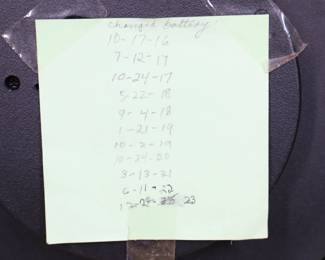 changed battery
10-17-16
7-12-17
10-24-17
5-22-18
9-4-18
1-21-19
10-2-19
10-24-20
3-13-21
6-11-22
12-29- 23